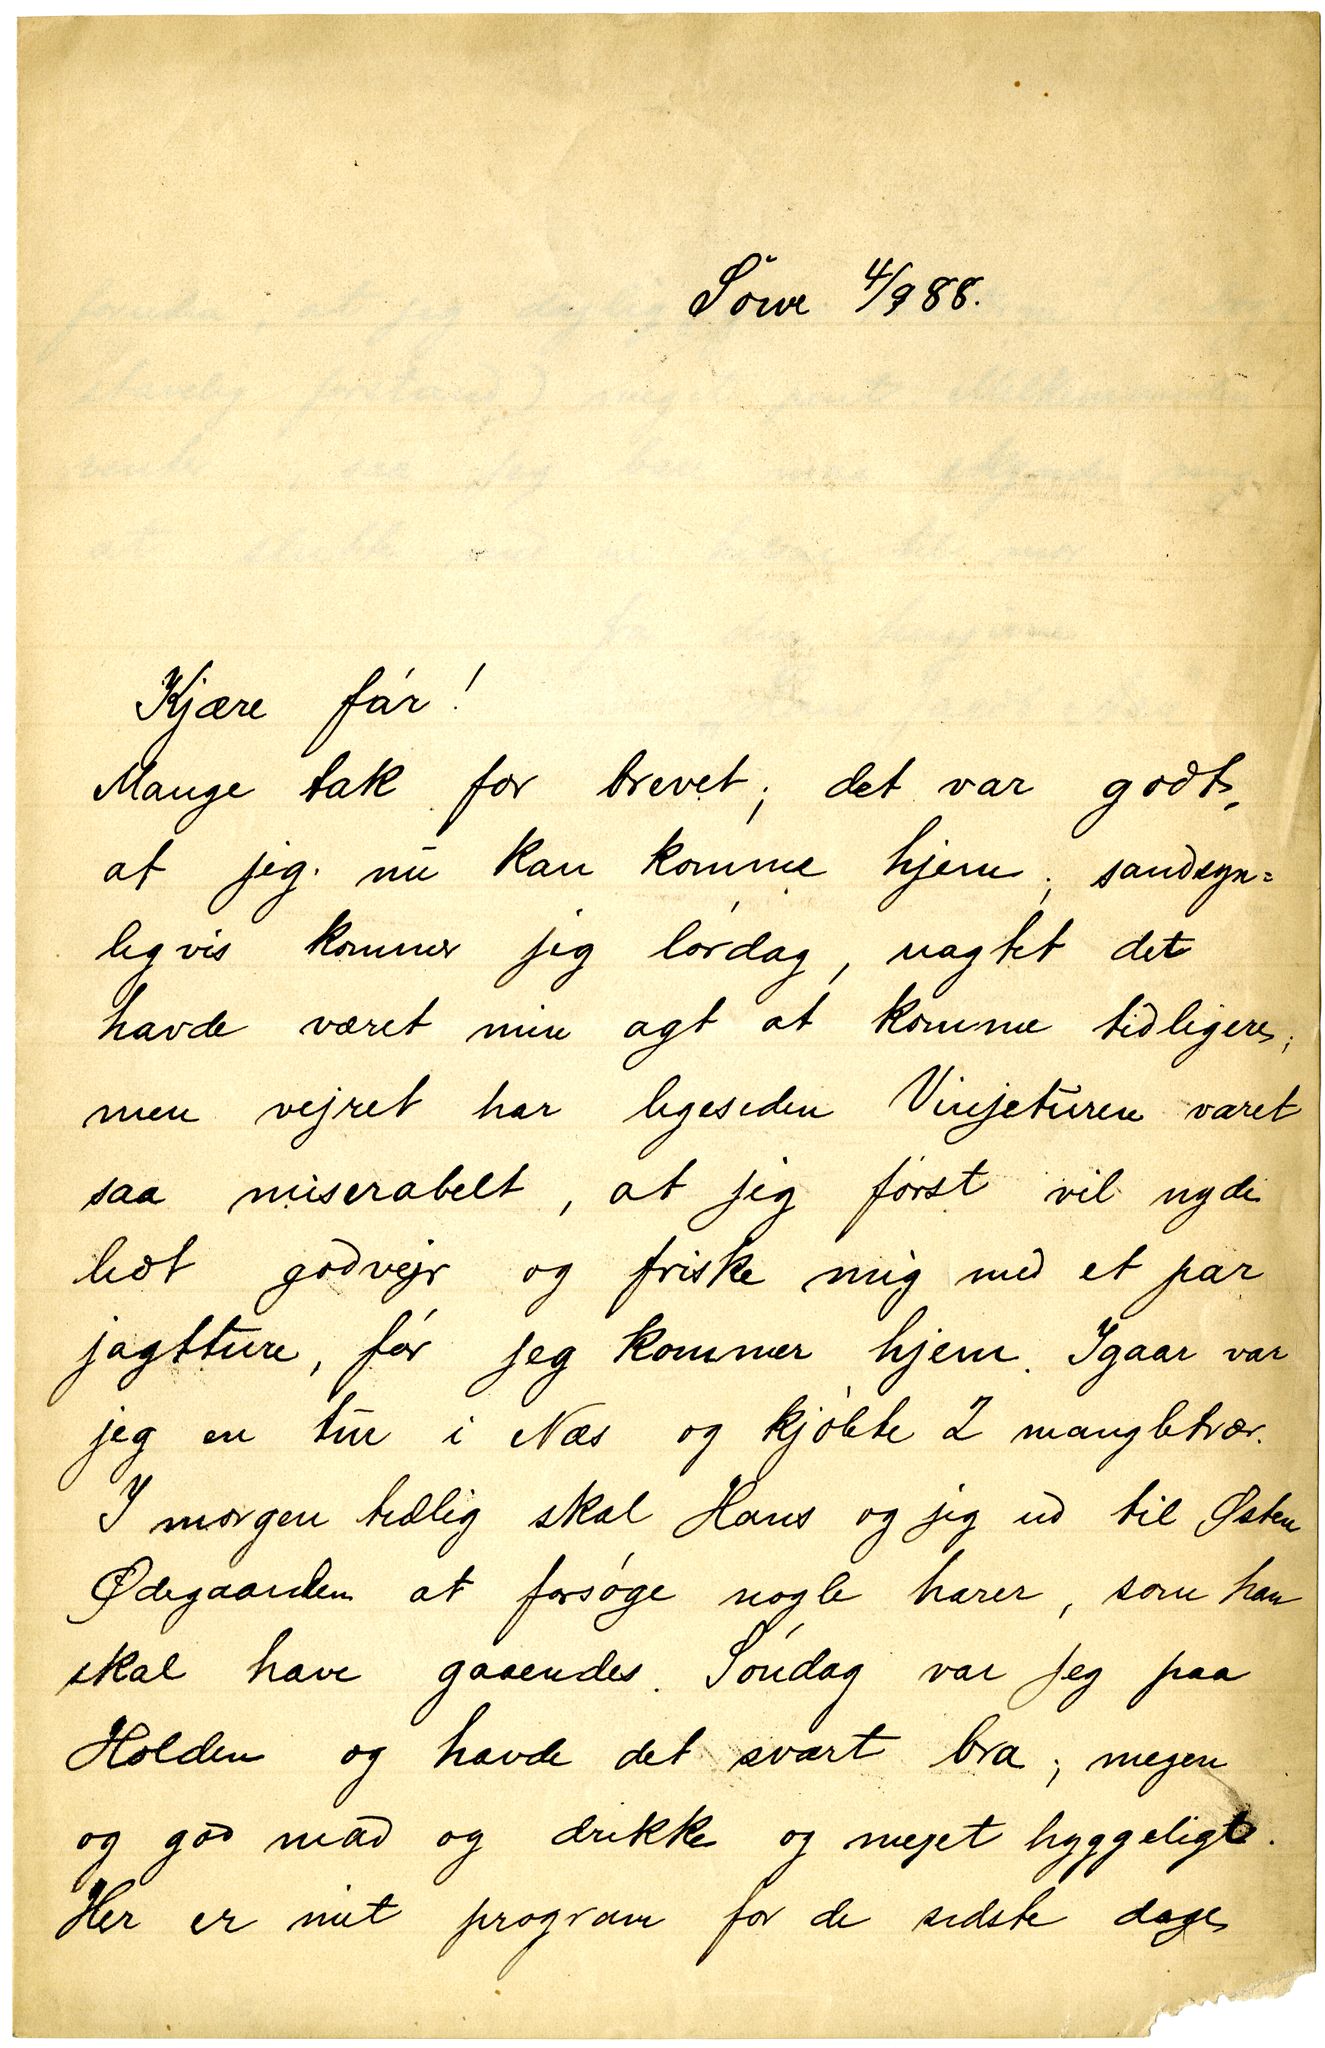 Søve 4/9 88.
Kjære far!
Mange tak for brevet; det var godt,
at jeg nu kan komme hjem; sandsyn=
ligvis kommer jeg lørdag, uagtet det
havde været min agt at komme tidligere;
men vejret har ligesiden Vinjeturen været
saa miserabelt, at jeg først vil nyde
lidt godvejr og friske mig med et par
jagtture, før jeg kommer hjem. Igaar var
jeg en tur i Næs og kjøbte 2 mangletrær.
I morgen tidlig skal Hans og jeg ud til Østen
Ødegaarden at forsøge nogle harer, som han
skal have gaaendes. Søndag var jeg paa
Holden og havde det svært bra; megen
og god mad og drikke og meget hyggeligt.
Her er mit program for de sidste dage